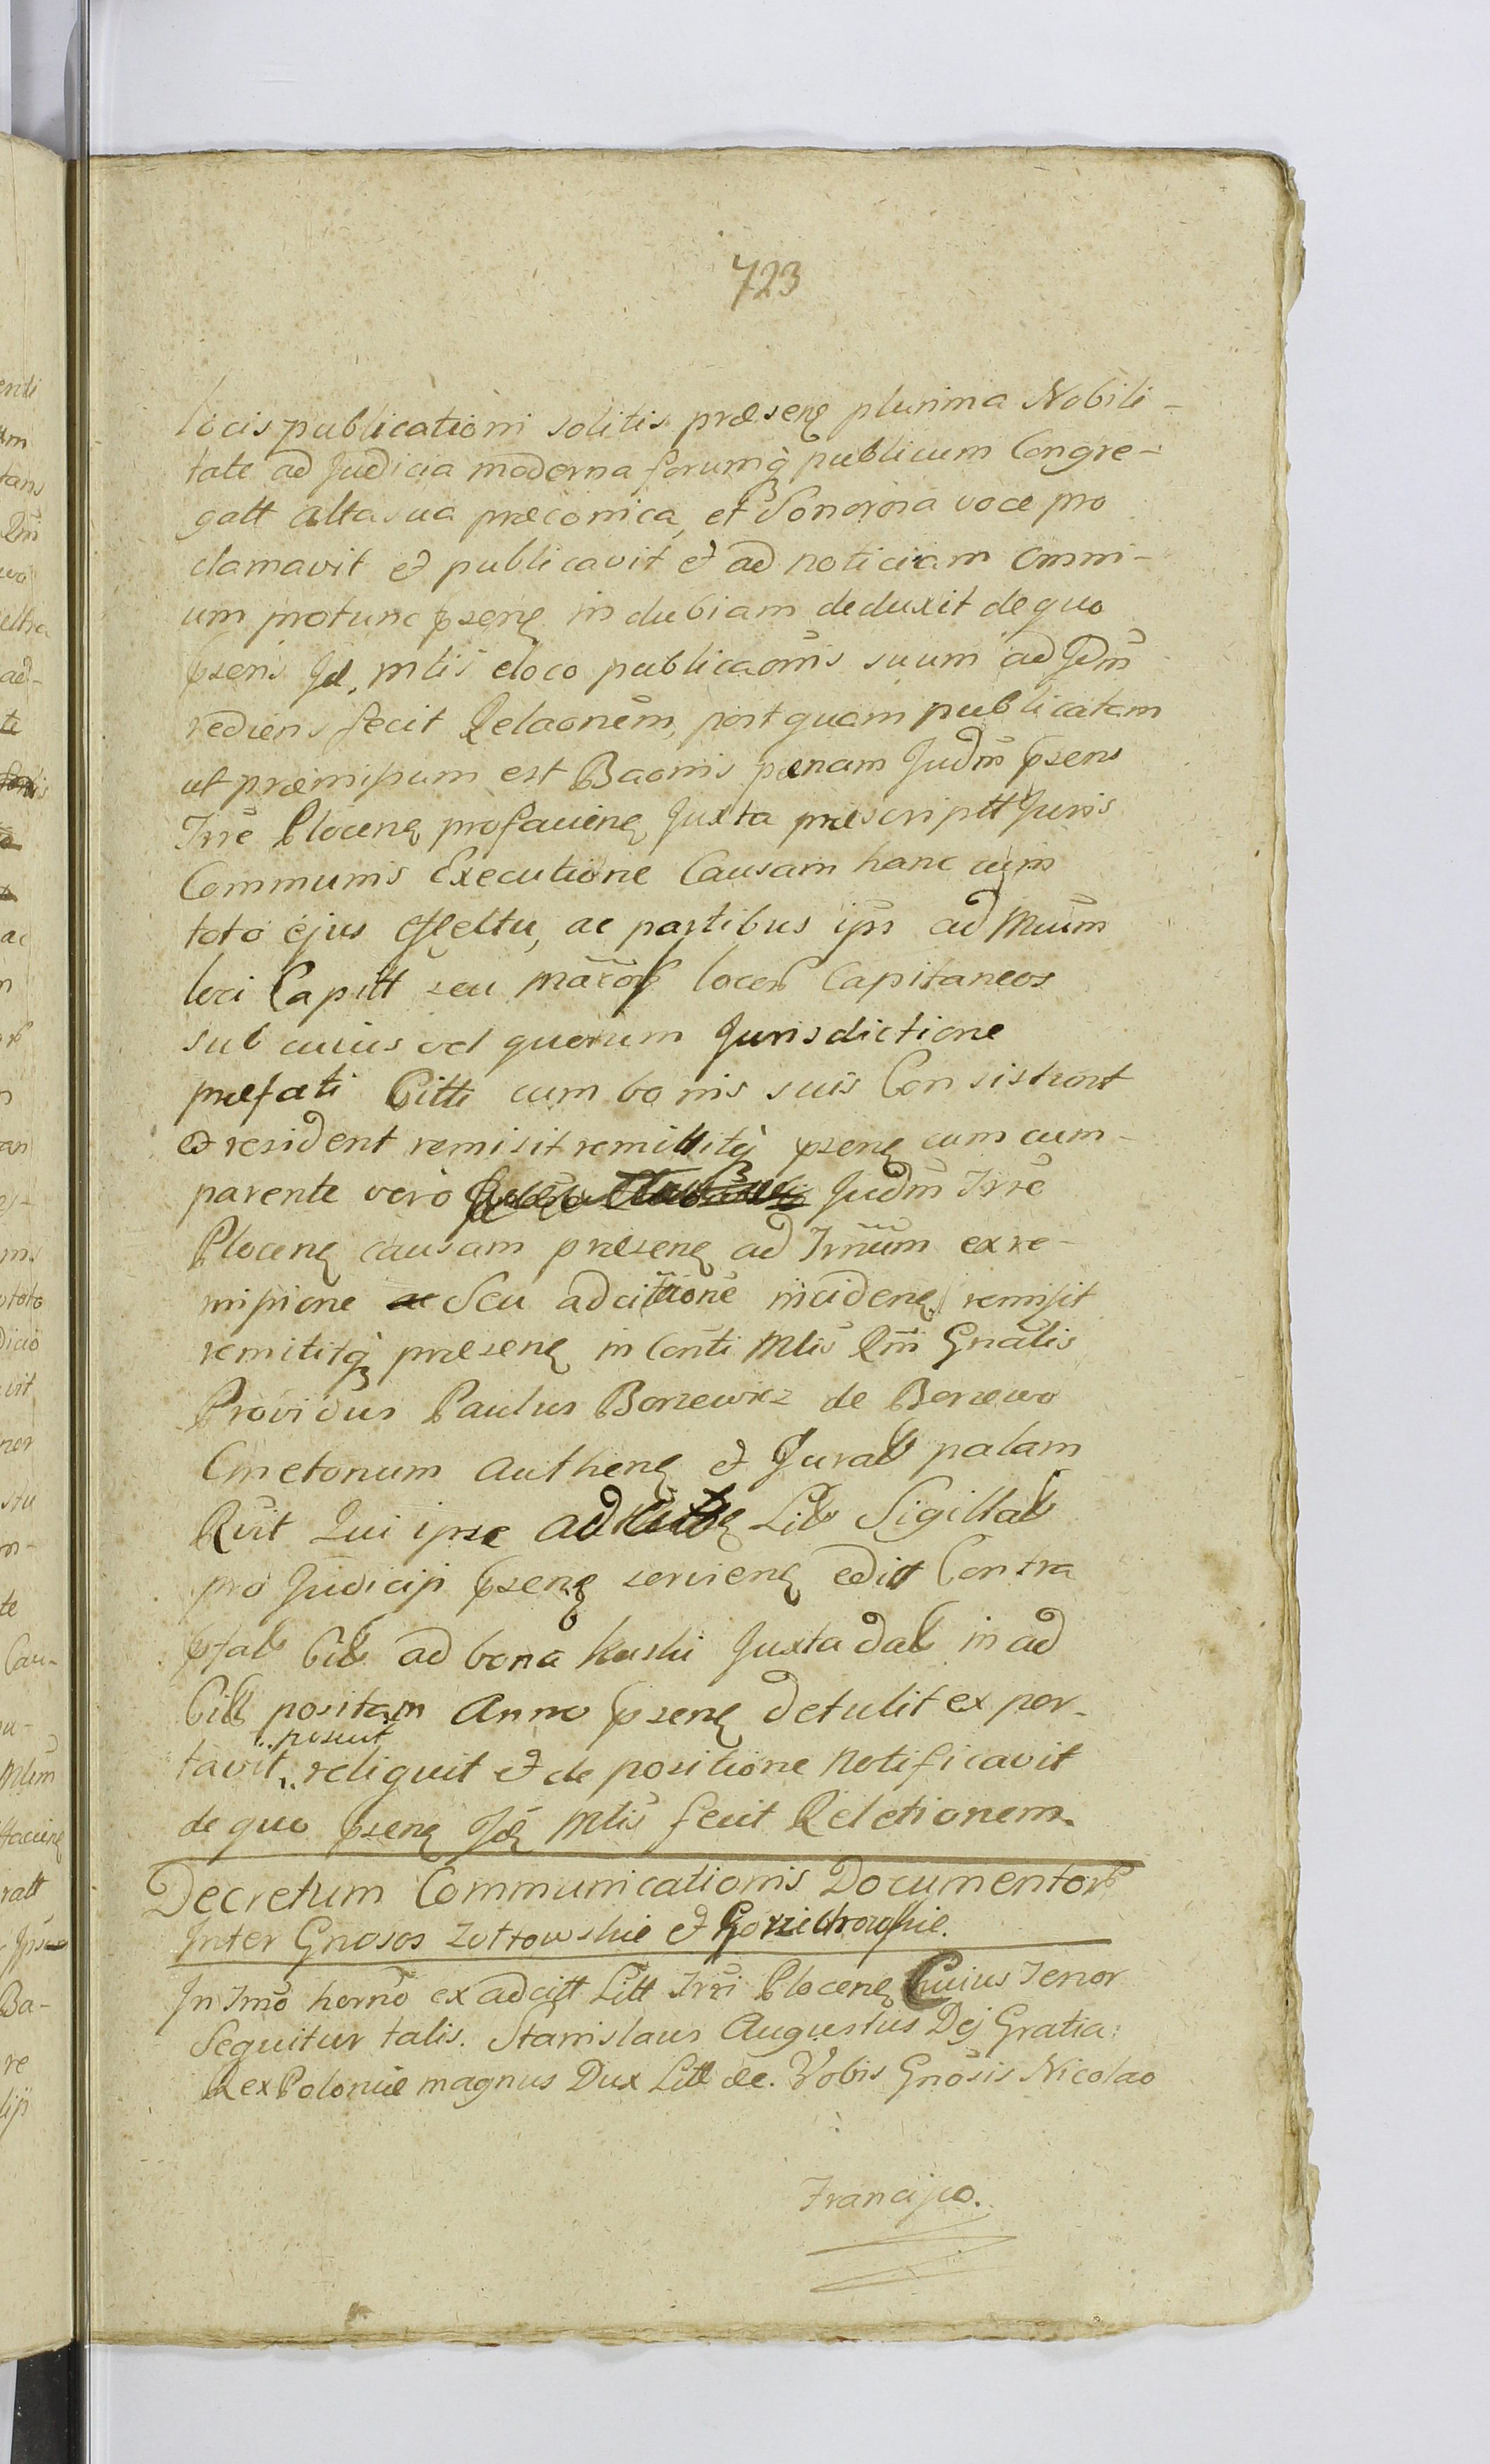 723
locis publicationi solitis præsenę plurima Nobili-
tate ad Judicia moderna forumq̀ publicum Congre-
gatt alta sua præconica, et Sonorosa voce pro
clamavit et publicavit et ad noticiam omni-
um protunc pseñę indubiam deduxit de quo
psens Jd. mlis eloco publicaonis suum ad Jdm̃
rediens fecit Relaonem, post quam publicatam
ut præmißum est Baonis pænam Judm̃ psens
Trre Plocenę profacienę Juxta præscriptt Juris
Communis Executione Causam hanc cum
toto ejus effectu, ac partibus ips ad
loci Capitt seu locorꝶ Capitaneos
sub cuius vel quorum Jurisdictione
præfati Citti cum bonis suis Consistunt
et resident remisit remittitq̀ psenę cum cum-
parente verò Judm̃ Trrẽ
Plocenę causam præsenę ad Trm̃um ex re-
mißione Seu adcittaoñe incidenę remisit
remititq̀ præsenę in Conti Mlis Rm̃i Gnalis
Providus Paulus Borzewicz de Borzewo
Cmetonum Authenę et Jurat palam
Rĩut Qui ipse Litt Sigillatt
pro Judicij psenę servienę edit Contra
pfatt Citt ad bona Kuski Juxta datt in ad
Citt positam Anno psenę detulit expor-
tavit, posuit reliquit et de positione notificavit
de quo psenę Jdę Mlis fecit Reletionem.
Decretum Communicationis Documentorꝶ
Inter Gnosos Zottowskie et
In Trm̃o horno ex adcitt Litt Trri Plocenę Cuius Tenor
Sequitur talis. Stanislaus Augustus Dej Gratia:
Rex Poloniæ magnus Dux Litt &c. Vobis Gnosis Nicolao
Francisco.